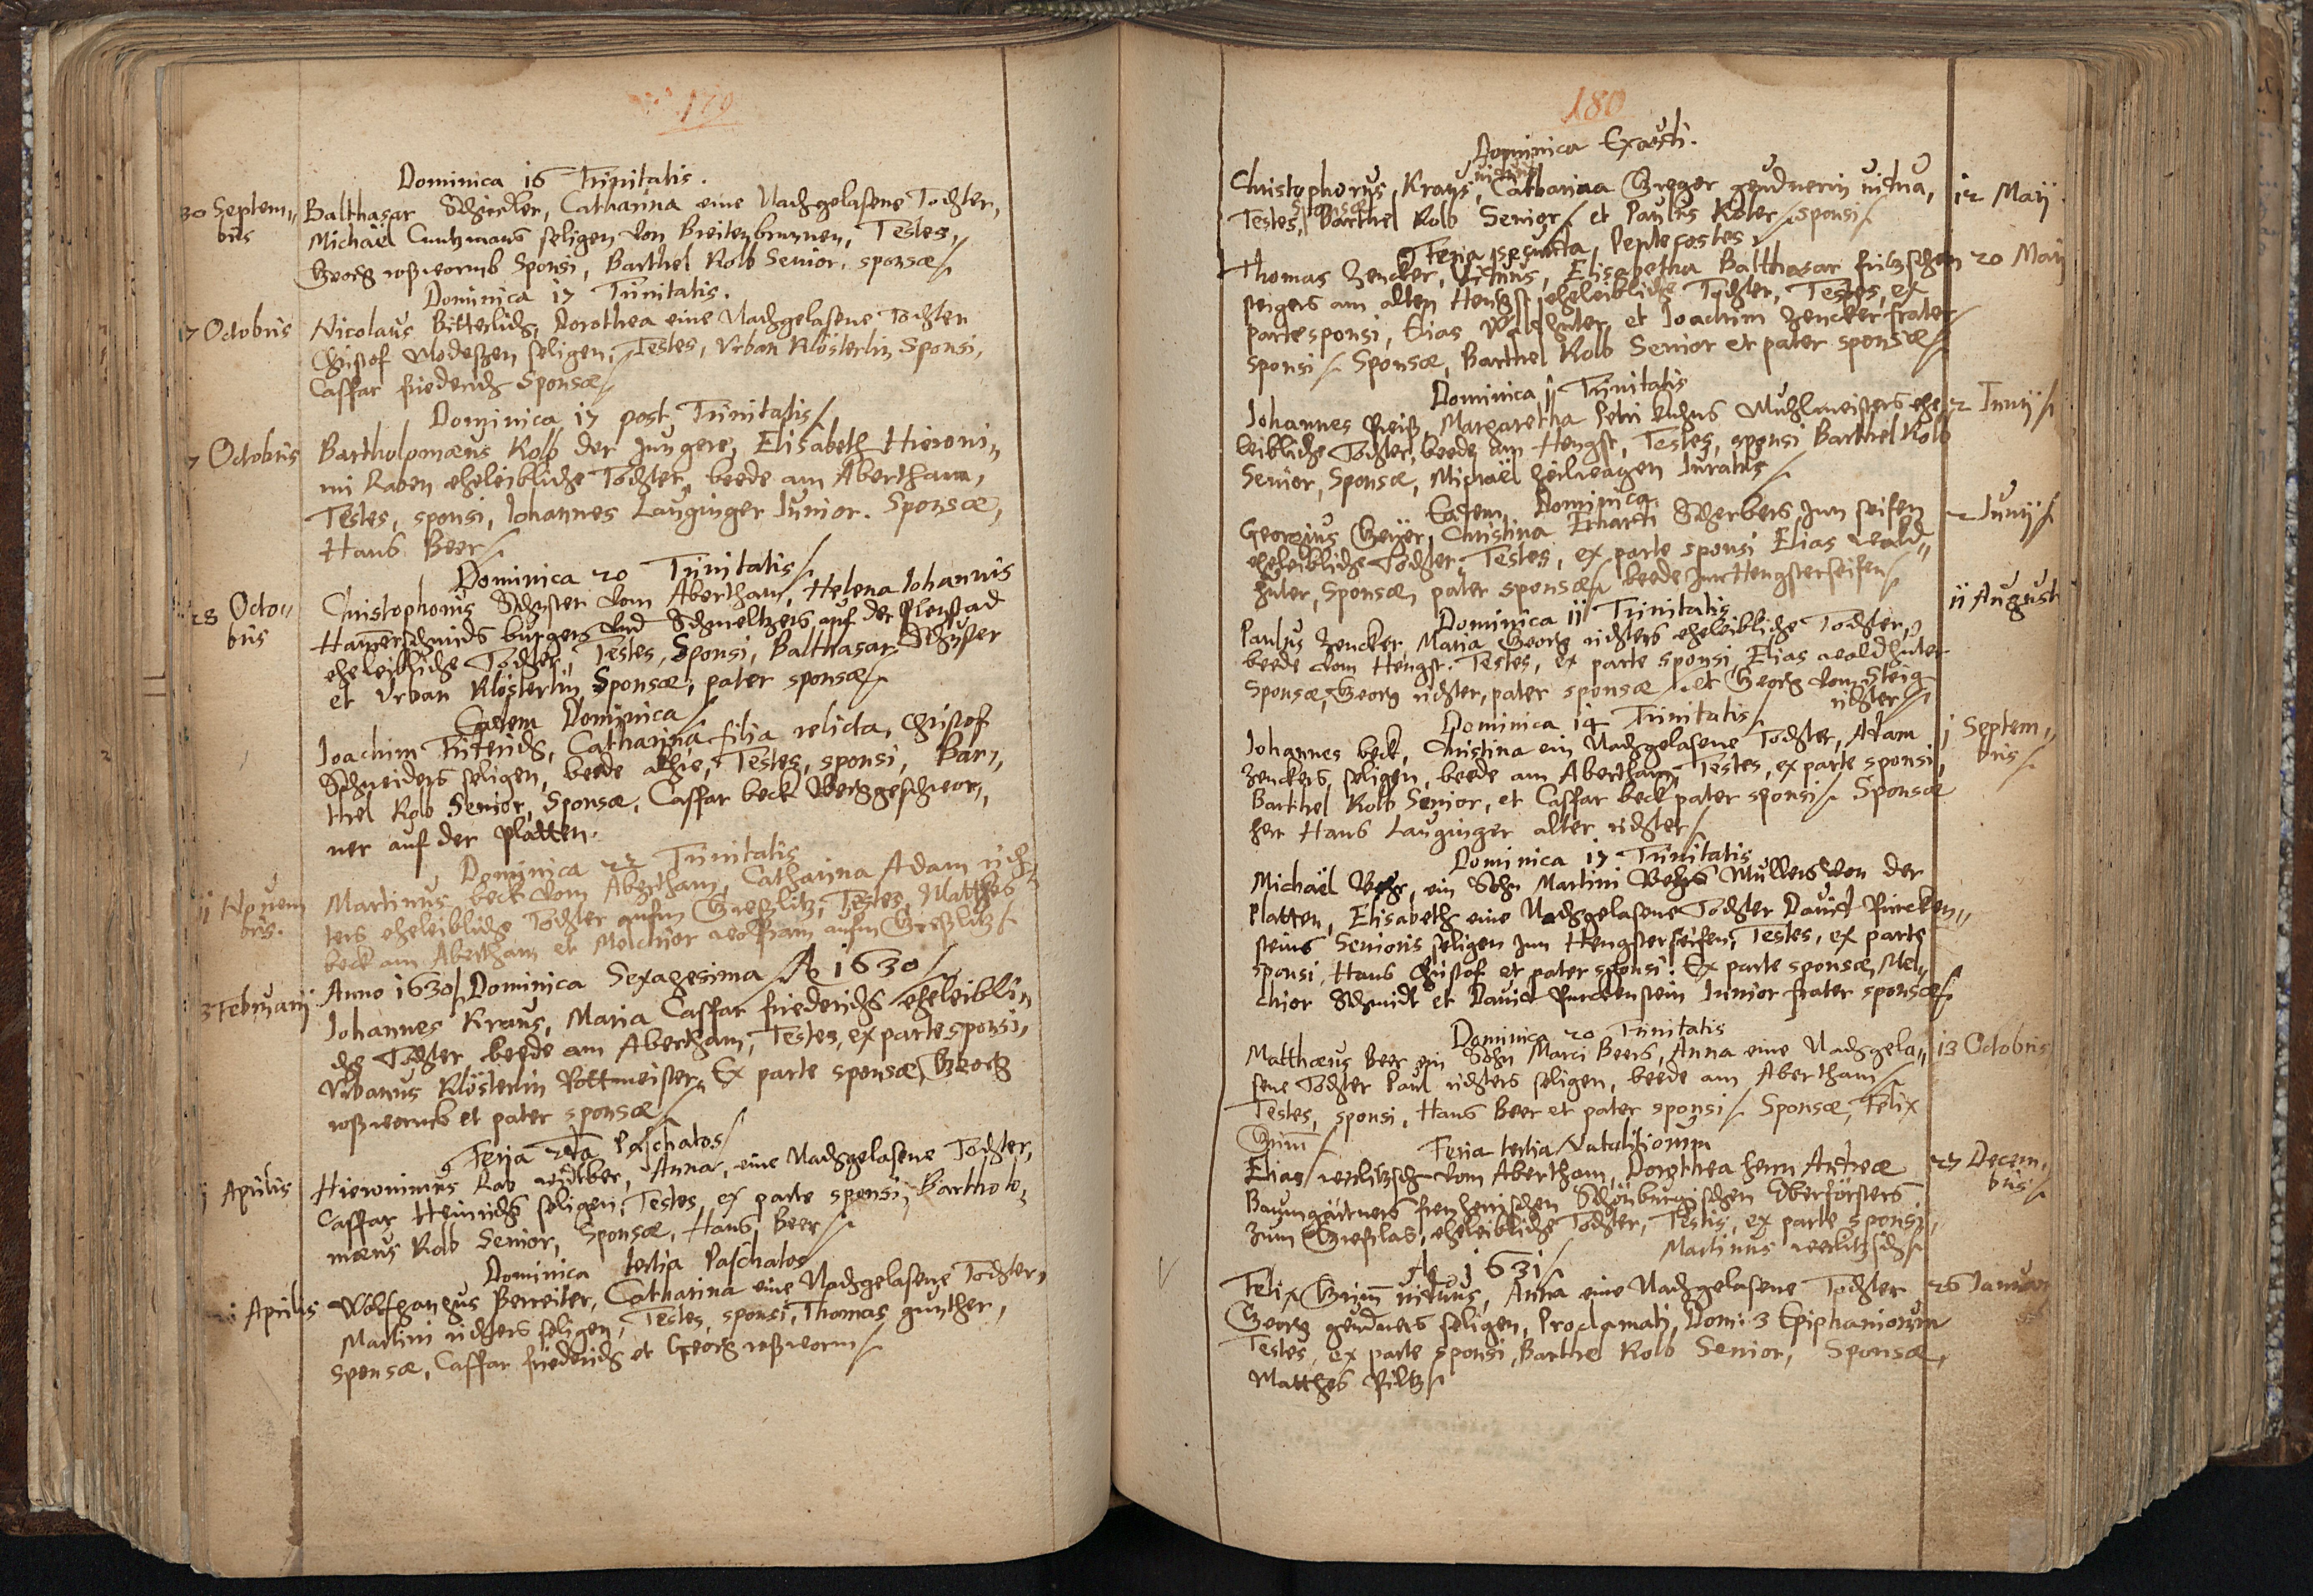 179
Dominica 16 Trinitatis.
30 Septem„
bris
Balthasar Schindler, Catharina eine Nachgelasene Tochter,
Michäel Cuntzmans seligen von Breitenbrunnen, Testes,
Georg roßwormb Sponsi, Barthel Kolb Senior, sponsæ
Dominica 17 Trinitatis.
7 Octobris
Nicolaus Bitterlich, Dorothea eine Nachgelasene Tochter
Christof seligen, Testes, Vrban Klösterlin Sponsi,
Casspar friederich Sponsæ
Dominica 17 post Trinitatis
7 Octobris
Bartholomæus Kolb der Jungere, Elisabeth Hieroni„
mi Raben eheleibliche Tochter, beede am Abertham,
Testes, sponsi, Johannes Lauginger Junior. Sponsæ,
Hans Beer
Dominica 20 Trinitatis
28 Octo„
bris
Christophorus Schuster vom Abertham, Helena Johannis
Hamerschmids burgers vnd Schmeltzers auf der
eheleibliche Tochter, Testes, Sponsi, Balthasar Schuster
et Vrban Klösterlin Sponsæ, pater sponsæ
Eadem Dominica
Joachim Catharina filia relicta, Christof
Schneiders seligen, beede alhie, Testes, sponsi, Bar„
thel Kolb Senior, Sponsæ, Casspar beck Berggeschwor„
ner auf der platten.
Dominica 22 Trinitatis
11 Novem
bris.
Martinus beck vom Abertham, Catharina Adam rich„
ters eheleibliche Tochter aufm Testes, Matthes
beck am Abertham et Melchior wolfram aufm
Anno 1630 Dominica Sexagesima Ao 1630
3 Februarij
Johannes Kraus, Maria Casspar friederichs eheleibli„
che Tochter, beede am Abertham, Testes, ex parte sponsi,
Vrbanus Klösterlin Rottmeister, Ex parte sponsæ, Georg
roßwormb et pater sponsæ
Feria 2da Paschatos
Aprilis
Hieronimus Rab widtber, Anna, eine Nachgelasene Tochter,
Casspar Heinrichs seligen, Testes, ex parte sponsi, Bartholo„
mæus Kolb Senior, Sponsæ, Hans Beer
Dominica tertia Paschatos
Aprilis
Wolfgangus Berreiter, Catharina eine Nachgelasene Tochter,
Martini richters seligen, Testes, sponsi, Thomas gunther,
sponsæ, Casspar friederich et Georg roßworm
180
Dominica Exaudi.
viduus
Christophorus Kraus, Catharina Greger gendnerin vidua,
12 Maij
Testes, Barthel Kolb Senior et Paulus Köler sponsi
Feria secunda Pentecostes
Thomas Zencker, viduus, Elisabetha Balthasar fritzschen
20 Maij
steigers am alten Hengst eheleibliche Tochter, Testes, ex
parte sponsi, Elias et Joachim Zencker frater
sponsi Sponsæ, Barthel Kolb Senior et pater sponsæ
Dominica 1 Trinitatis
Johannes Reiß, Margaretha Petri Muhlmeisters ehe
2 Junij
leibliche Tochter, beede am Hengst, Testes, sponsi Barthel Kolb
Senior, Sponsæ, Michäel Juratus
Eadem Dominica
Georgius Geyer, Christina Erhardi Scherbers Jnn seifen
2 Junij
eheleibliche Tochter, Testes, ex parte sponsi Elias wald„
huter, Sponsæ, pater sponsæ beede Jnn Hengsterseifen
Dominica 11 Trinitatis
11 Augusti
Paulus Zencker, Maria Georg richters eheleibliche Tochter,
beede vom Hengst. Testes, ex parte sponsi, Elias waldhuter
Sponsæ, Georg richter, pater sponsæ et Georg vom Steig
richter
Dominica 14 Trinitatis
1 Septem„
bris
Johannes beck, Christina ein Nachgelasene Tochter, Adam
Zenckers, seligen, beede am Abertham, Testes, ex parte sponsi,
Barthel Kolb Senior, et Casspar beck pater sponsi Sponsæ
herr Hans Lauginger alter richter
Dominica 17 Trinitatis
Michäel ein Sohn Martini Mullers von der
Platten, Elisabeth eine Nachgelasene Tochter David Pürcken„
steins Senioris seligen Jnn Hengsterseifen, Testes, ex parte
sponsi, Hans Christof et pater sponsi. Ex parte sponsæ, Mel„
chior Schmidt et David Purckenstein Junior frater sponsæ
Dominica 20 Trinitatis
Matthæus Beer ein Sohn Marci Beers, Anna eine Nachgela„
13 Octobris
sene Tochter Paul richters seligen, beede am Abertham
Testes, sponsi, Hans Beer et pater sponsi Sponsæ, Felix
Grim̄
Feria tertia Natalitiorum
27 Decem„
bris
Elias vom Abertham, Dorothea herrn Andreæ
Baumgartners Schönburgischen Oberförsters
zum eheleibliche Tochter, Testis, ex parte sponsi,
Martinus
Ao 1631
Felix Grim̄ viduus, Anna eine Nachgelasene Tochter
26 Januar
Georg gendners seligen, Proclamati, Domi: 3 Epiphaniorum
Testes, ex parte sponsi, Barthel Kolb Senior, Sponsæ,
Matthes Piltz